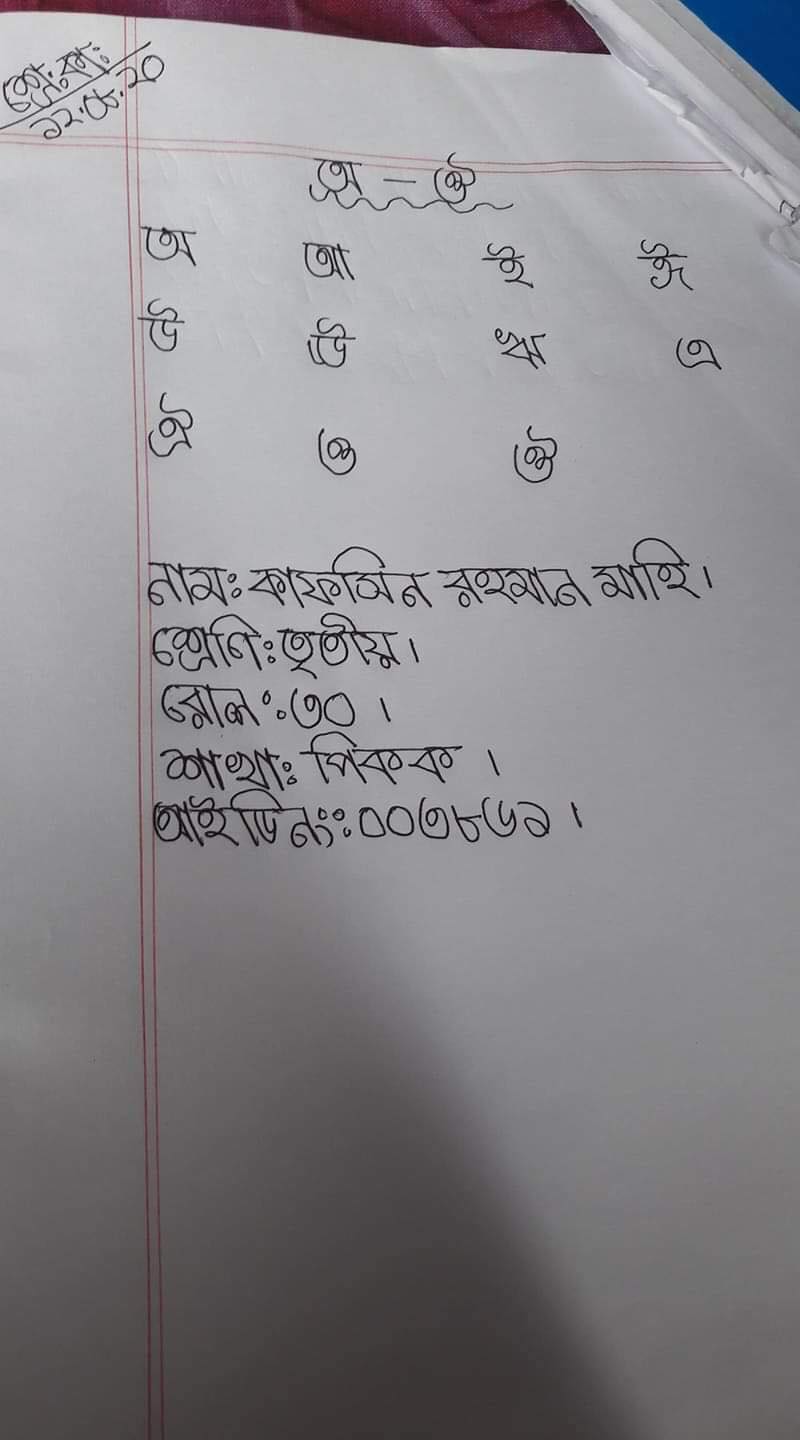 শ্রে: কা:
১২.০৮.২০
অ – ঔ
অ আ ই ঈ
উ ঊ ঋ এ
ঐ ও ঔ
নামঃ কাফমিন রহমান মাহি।
শ্রেণি: তৃতীয়।
রোল : ৩০ ।
শাখাঃ পিকক ।
আইডি নং: ০০৩৮৬১ ।